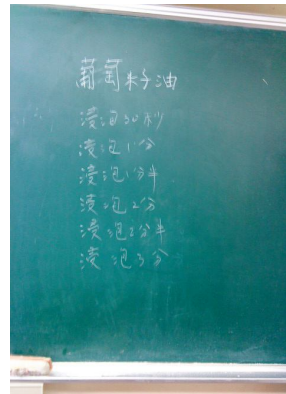 葡萄籽油
浸泡30秒
浸泡1分
浸泡1分半
浸泡2分
浸泡2分半
浸泡3分